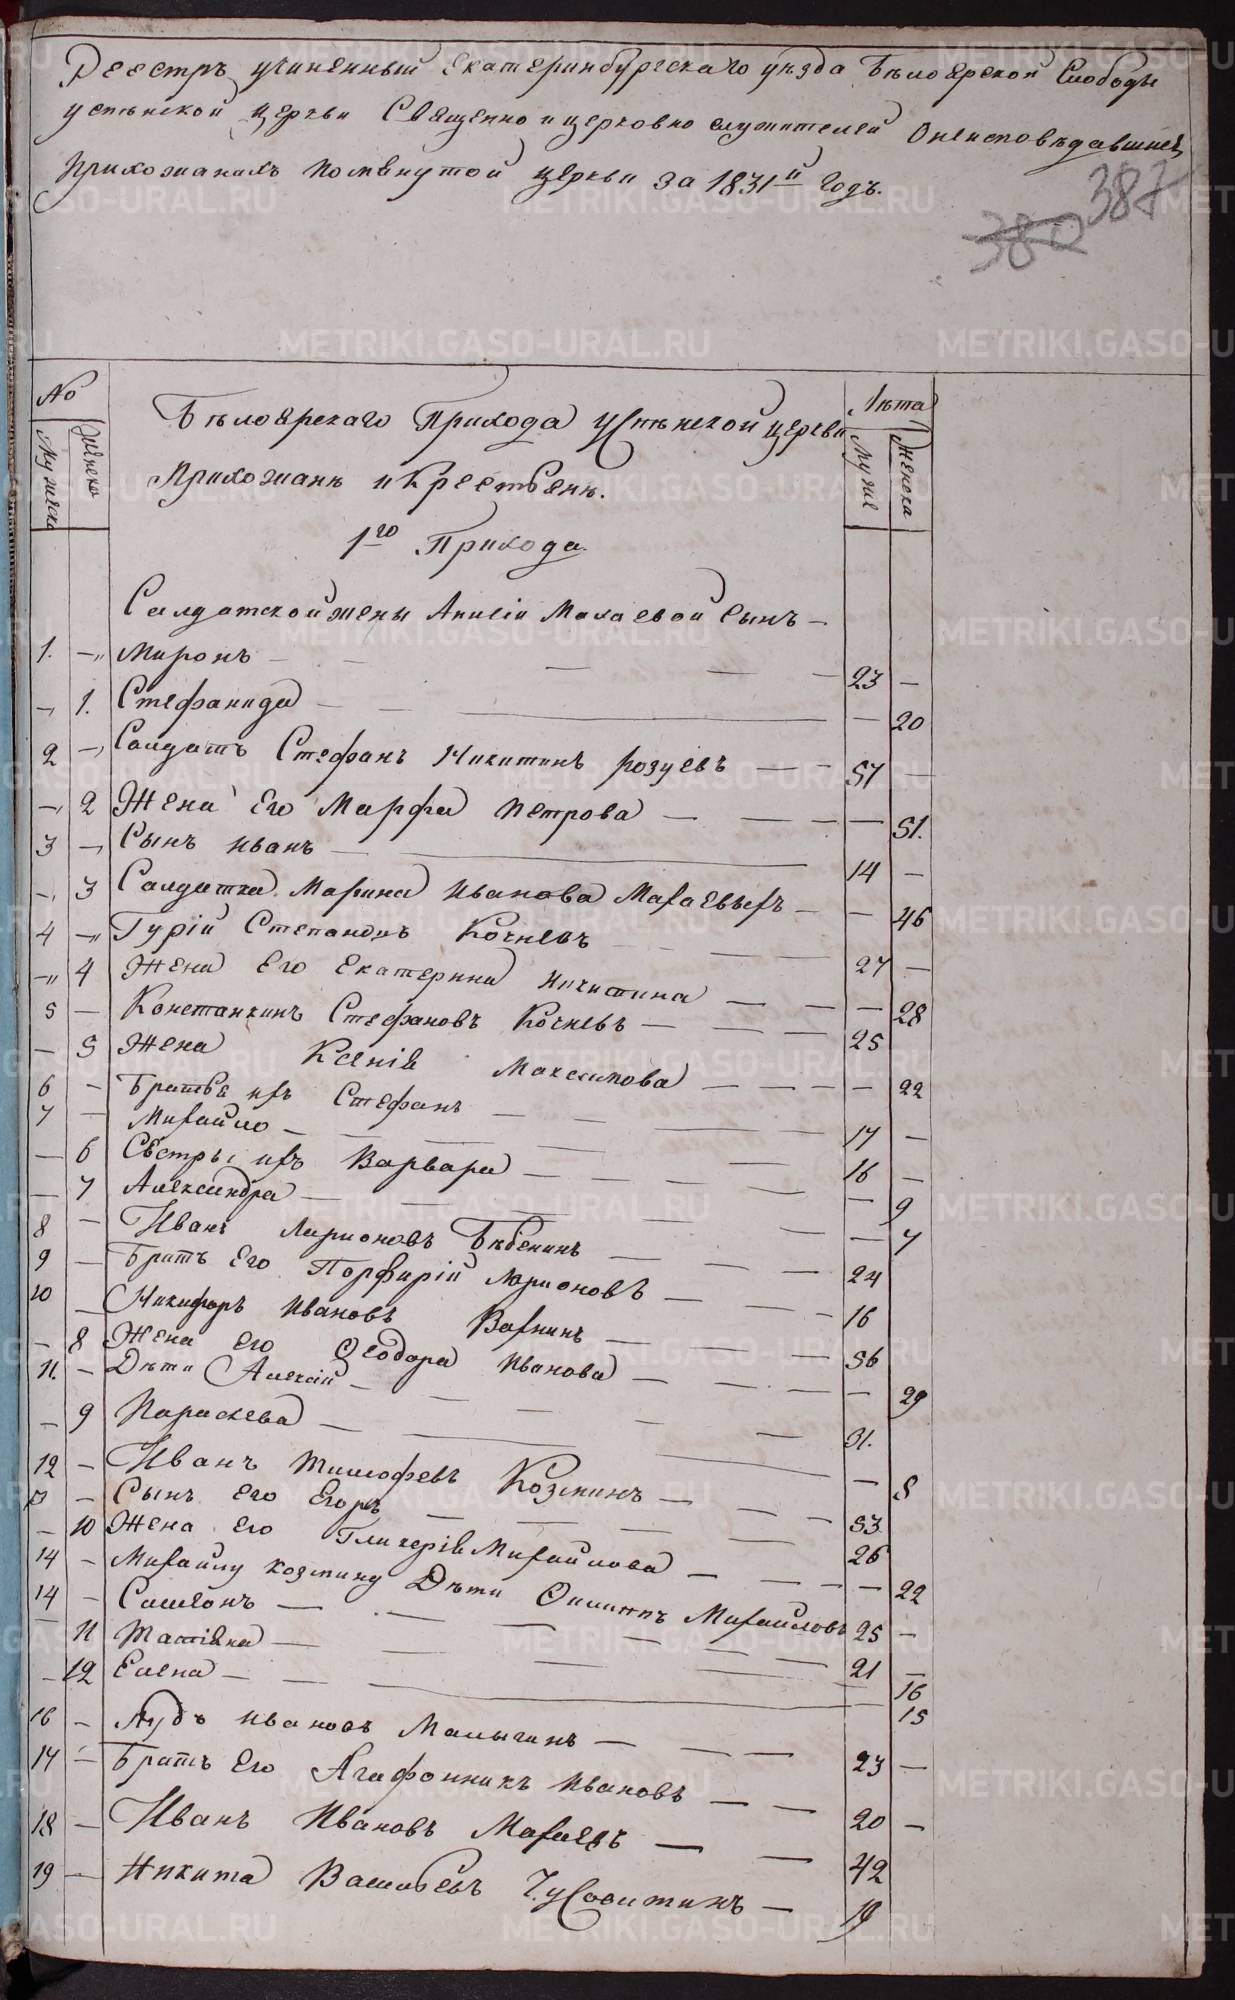 Реестръ учиненный Екатеринбургскаго уѣзда Бѣлоярской Слободы
церкви Священно и церковно служителей О неисповѣдавшихся
прихожанахъ помянутой церкви за 1831й годъ.
387
380
№ Лѣта
Мужеска Женска Бѣлоярскаго Прихода церкви Мужск Женска
Прихожанъ и Крестьянъ.
1го Прихода.
Салдатской жены Анисіи Махаевой Сынъ —
1. —„ Миронъ — — — 23 —
—„ 1. Стефанида — — — — 20
2 —„ Салдатъ Стефанъ Никитинъ Розуевъ — — 57 —
—„ 2 Жена Его Марфа Петрова — — — — 51.
3 —„ Сынъ Иванъ — — 14 —
—„ 3 Салдатка Марина Иванова Махаевыхъ — — 46
4 —„ Гурій Степановъ Кочневъ — — 27 —
—„ 4 Жена Его Екатерина Никитина — — — 28
5 — Константинъ Стефановъ Кочневъ — — — 25
— 5 Жена Ксенія Максимова — — — — 22
6 — Братья ихъ Стефанъ — — — 17 —
7 — Михайло — — — 16 —
— 6 Сестры ихъ Варвара — — — — 9
— 7 Александра — — — — 7
8 — Иванъ Ларионовъ Бабенинъ — — — 24
9 — Братъ Его Порфирій Ларионовъ — — — 16
10 — Никифоръ Ивановъ Вахнинъ — — — 56
— 8 Жена его Феодора Иванова — — — — 29
11. — Дѣти Алексій — — — 31.
— 9 Параскева — — — — 8
12 — Иванъ Тимофевъ Козминъ — — 53
13 — Сынъ его Егоръ — — — 26
— 10 Жена его Гликерія Михайлова — — — — 22
14 — Михайлу Козмину Дѣти Михайловъ 25 —
14 — Симеонъ — — — 21 —
— 11 Татіана — — — 16
— 12 Елена — — — 15
16 — Иудъ Ивановъ Малыгинъ — — — 23 —
17 — Братъ Его Агафонникъ Ивановъ — — 20 —
18 — Иванъ Ивановъ Махаевъ — — 42
19 — Никита Васильевъ Чусовитинъ — 19
METRIKI.GASO-URAL.RU